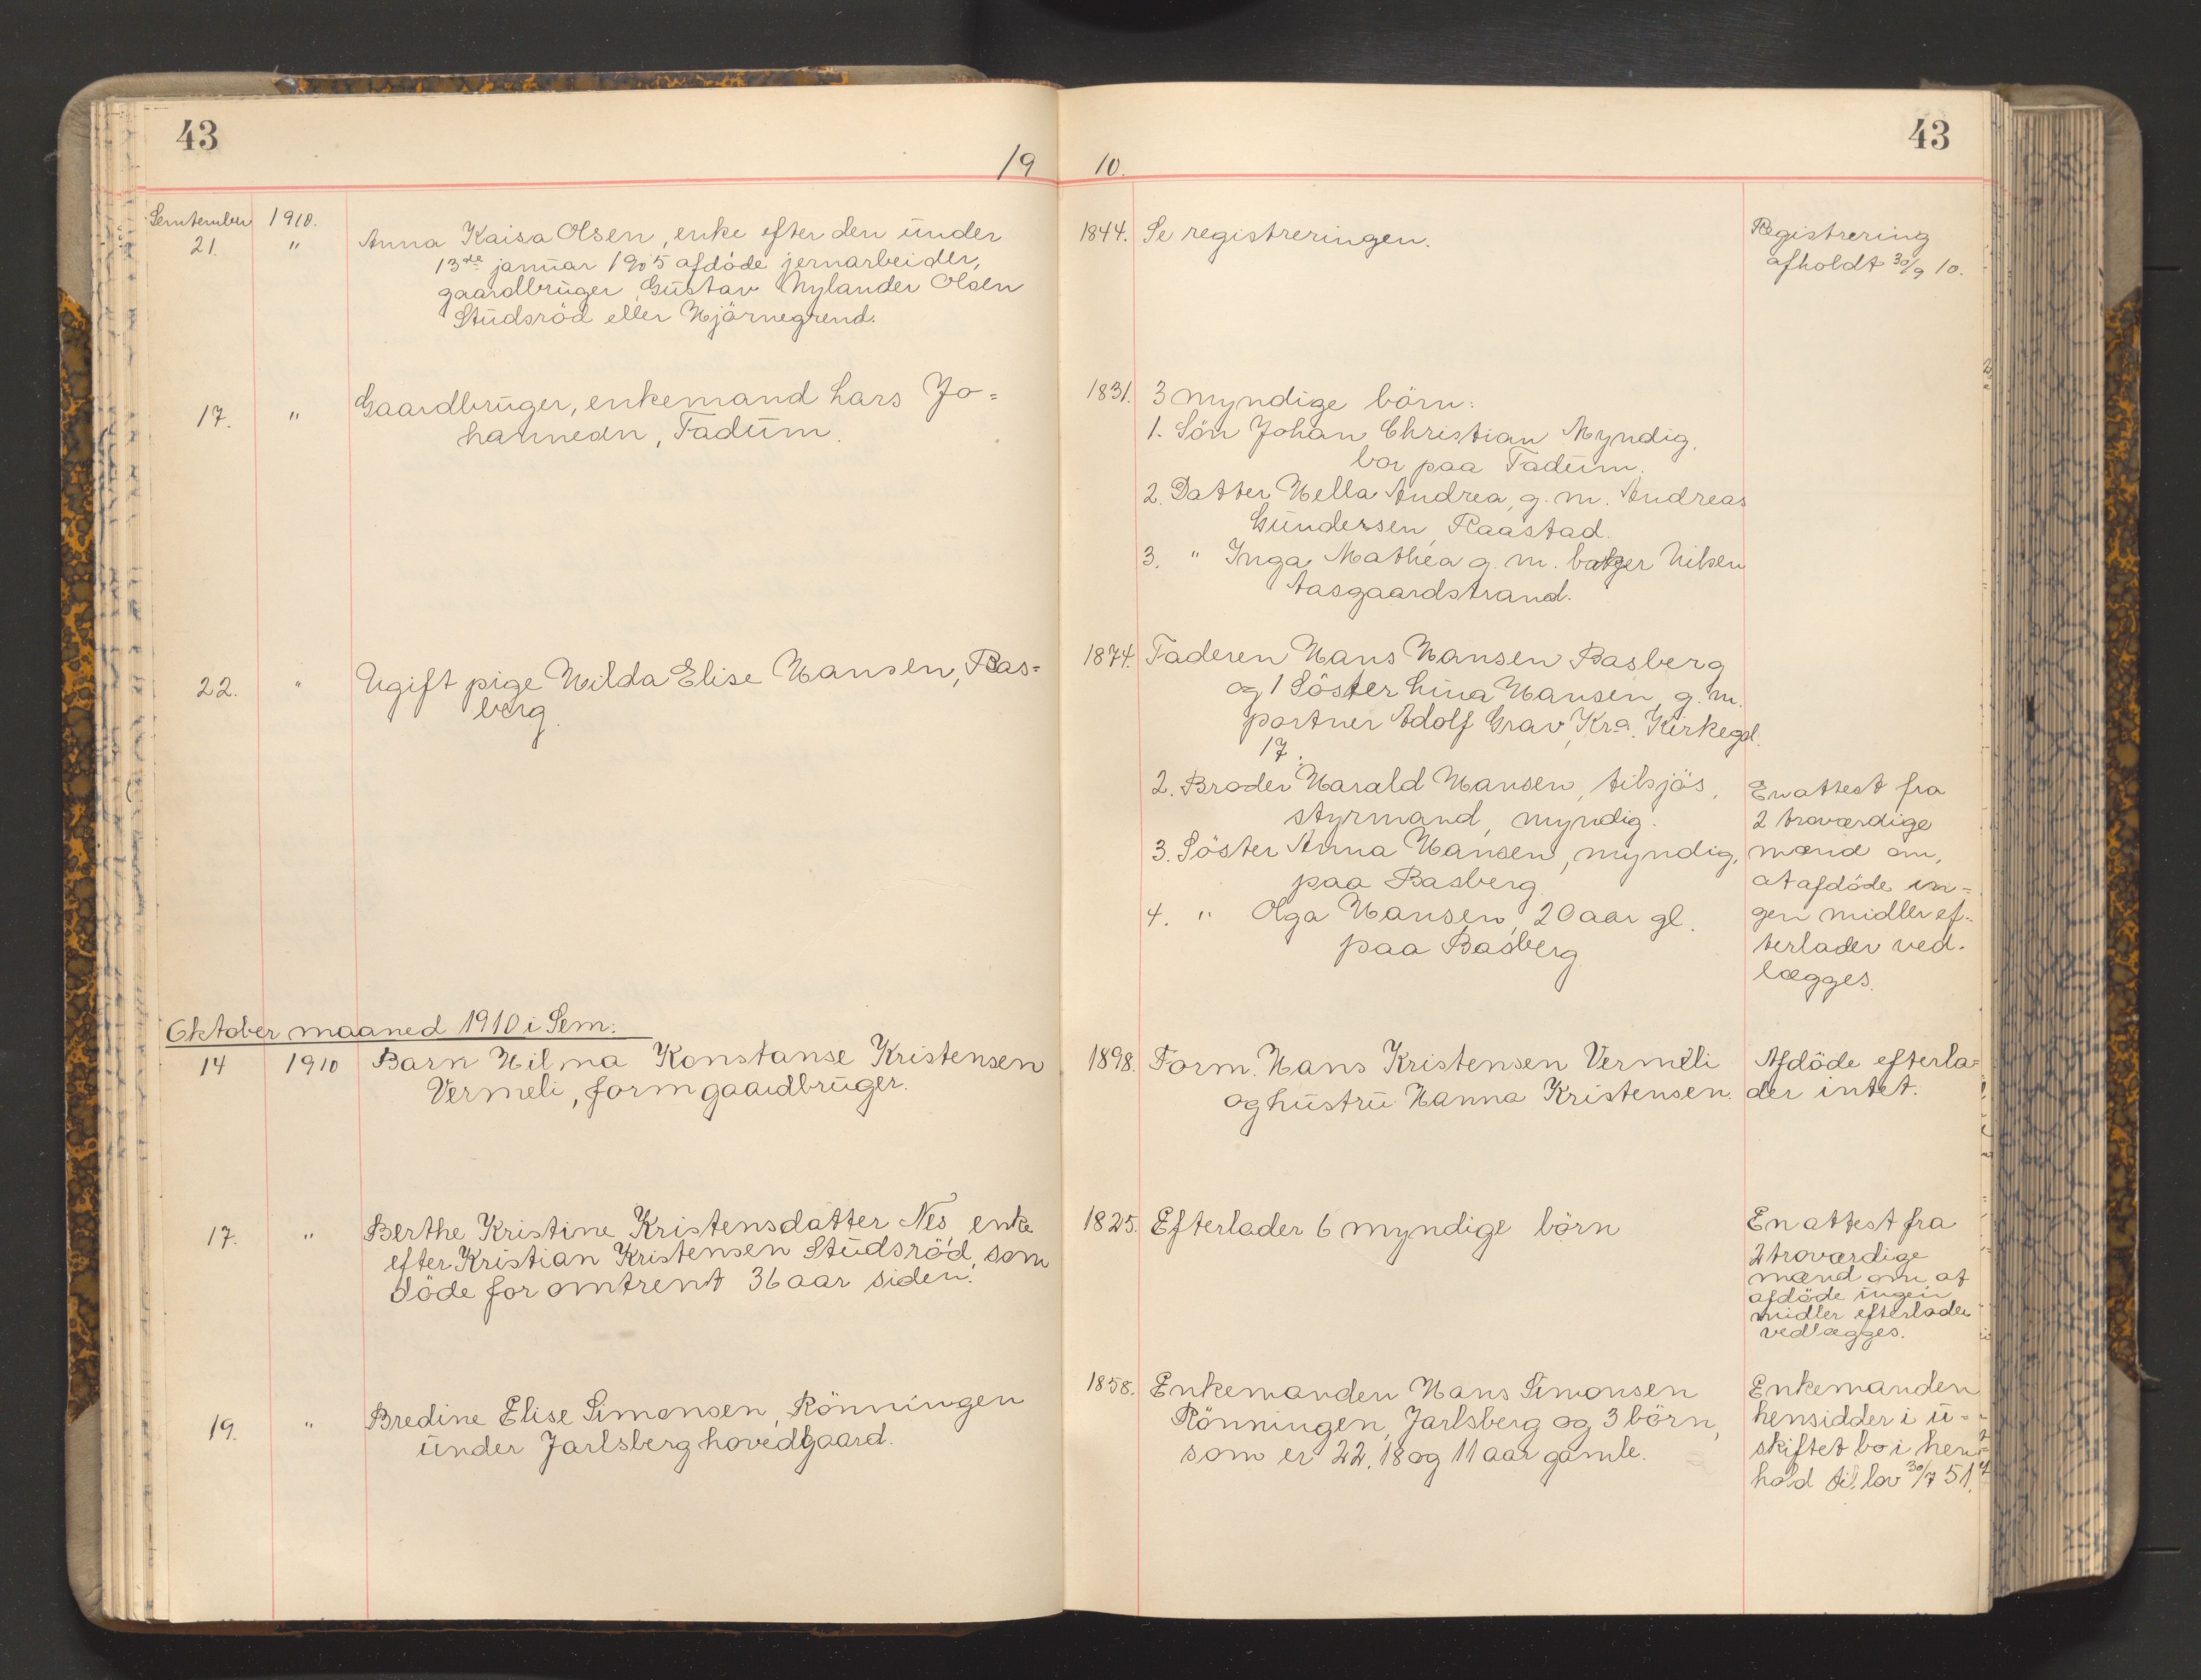 43
43
19 10.
Semtember 1910.
21. " Anna Kaisa Olsen, enke efter den under
13de januar 1905 afdöde jernarbeider,
gaardbruger Gustav Nylander Olsen
Studsröd eller Hjörnegrend.
1844. Se registreringen.
Registrering
afholdt 30/9 10.
17. " Gaardbruger, enkemand Lars Jo=
hannedn, Tadum.
1831. 3 myndige börn:
1. Sön Johan Christian Myndig.
bor paa Tadum.
2. Datter Hella Andrea, g. m. Andreas
Gundersen, Raastad.
3. " Inga Mathea g. m. Nilsen
Aasgaardstrand.
22. " Ugift pige Hilda Elise Hansen, Bas=
berg.
1874. Faderen Hans Hansen Basberg
og 1 Söster Lina Hansen, g. m.
portner Adolf Grav, Kra. Kirkegd.
17.
2. Broder Harald Hansen, tilsjös,
styrmand, myndig.
3. Söster Anna Hansen, myndig,
paa Basberg
4. " Olga Hansen, 20 aar gl.
paa Basberg
En attest fra
2 troværdige
mænd om,
at afdöde in=
gen midler ef=
terlader ved-
lægges.
Oktober maaned 1910 i Sem:
14 1910 Barn Hilma Konstanse Kristensen
Vermeli, form gaardbruger.
1898. Form. Hans Kristensen Vermeli
og hustru Hanna Kristensen.
Afdöde efterla=
der intet.
17. " Berthe Kristine Kristensdatter Nes, enke
efter Kristian Kristensen Studsröd, som
döde for omtrent 36 aar siden.
1825. Efterlader 6 myndige börn
En attest fra
2 troværdige
mænd om, at
afdöde ingen
midler efterlader
vedlægges.
19. " Bredine Elise Simonsen, Rönningen
under Jarlsberg hovedgaard.
1858. Enkemanden Hans Simonsen
Rönningen, Jarlsberg og 3 börn,
som er 22, 18 og 11 aar gamle.
Enkemanden
hensidder i u=
skiftet bo i hen=
hold til lov 30/7 51.